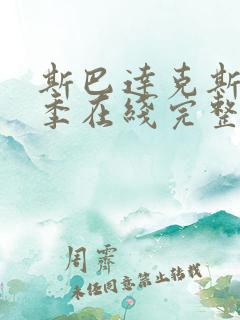 斯巴达克斯
季在线完整
周霁
未经同意禁止转载